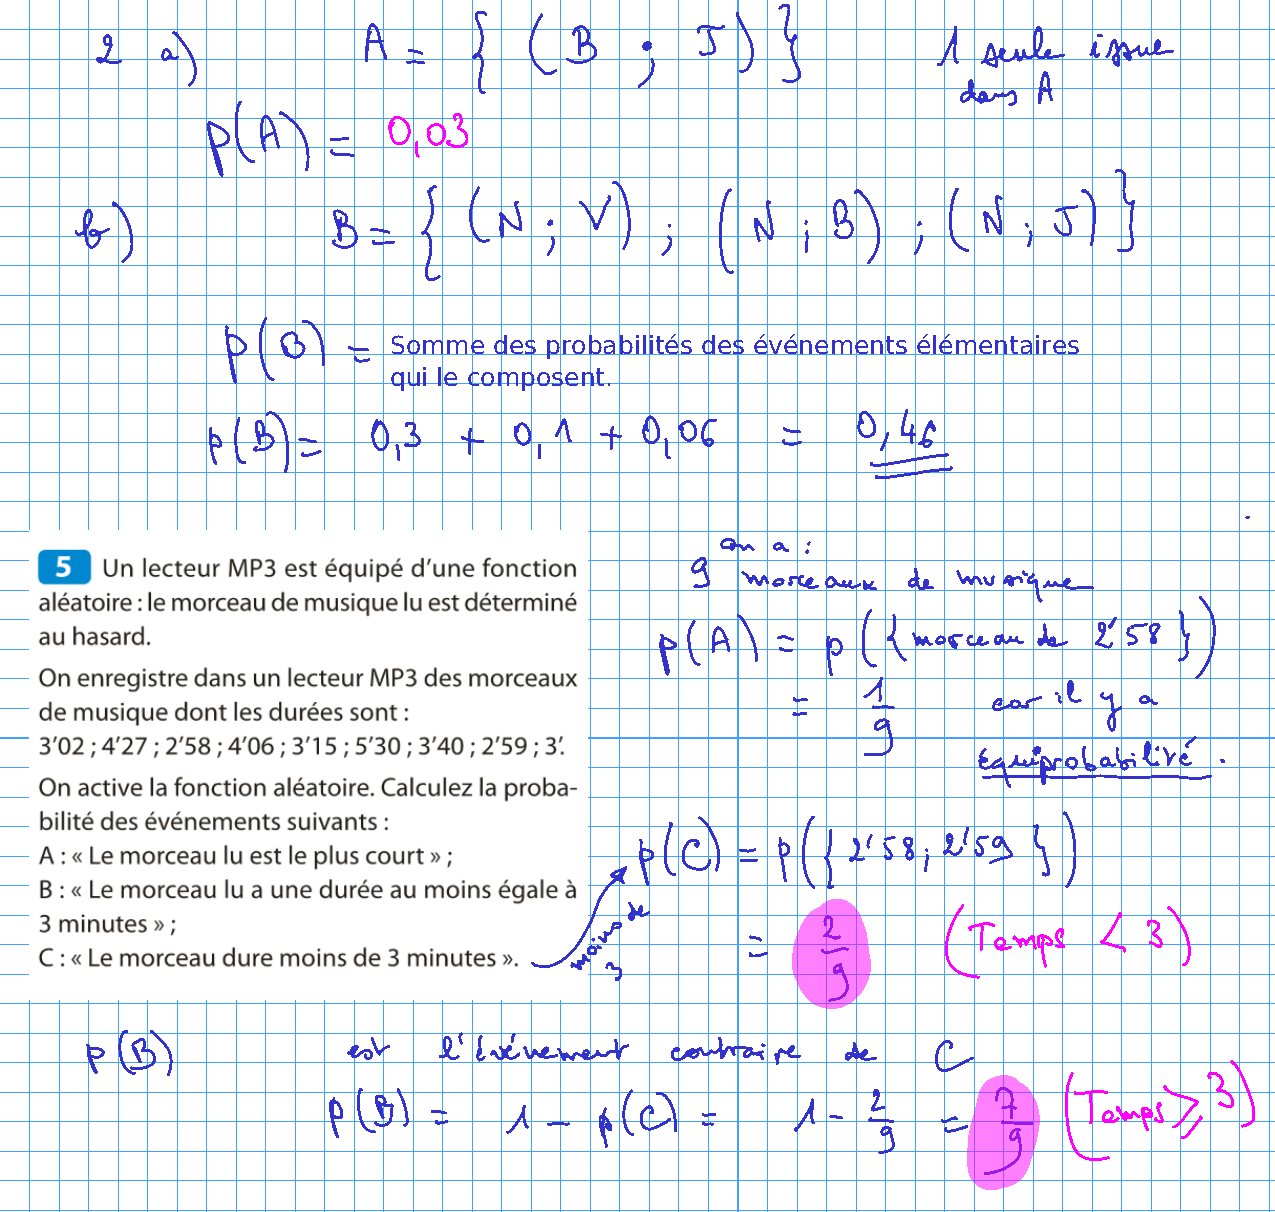 2 a) A = { ( B ; J ) } 1 seule issue
dans A
p(A) = 0,03
b) B = { (N ; V) ; (N ; B) ; (N ; J) }
p(B) = Somme des probabilités des événements élémentaires
qui le composent.
p(B) = 0,3 + 0,1 + 0,06 = 0,46
5 Un lecteur MP3 est équipé d’une fonction
aléatoire : le morceau de musique lu est déterminé
au hasard.
On enregistre dans un lecteur MP3 des morceaux
de musique dont les durées sont :
3’02 ; 4’27 ; 2’58 ; 4’06 ; 3’15 ; 5’30 ; 3’40 ; 2’59 ; 3’.
On active la fonction aléatoire. Calculez la proba-
bilité des événements suivants :
A : « Le morceau lu est le plus court » ;
B : « Le morceau lu a une durée au moins égale à
3 minutes » ;
C : « Le morceau dure moins de 3 minutes ».
on a :
9 morceaux de musique
p(A) = p({morceau de 2'58})
= 1/9 car il y a
équiprobabilité.
moins de
3
p(C) = p({2'58 ; 2'59})
= 2/9 (Temps < 3)
p(B) est l'événement contraire de C
p(B) = 1 - p(C) = 1 - 2/9 = 7/9 (Temps ⩾ 3)